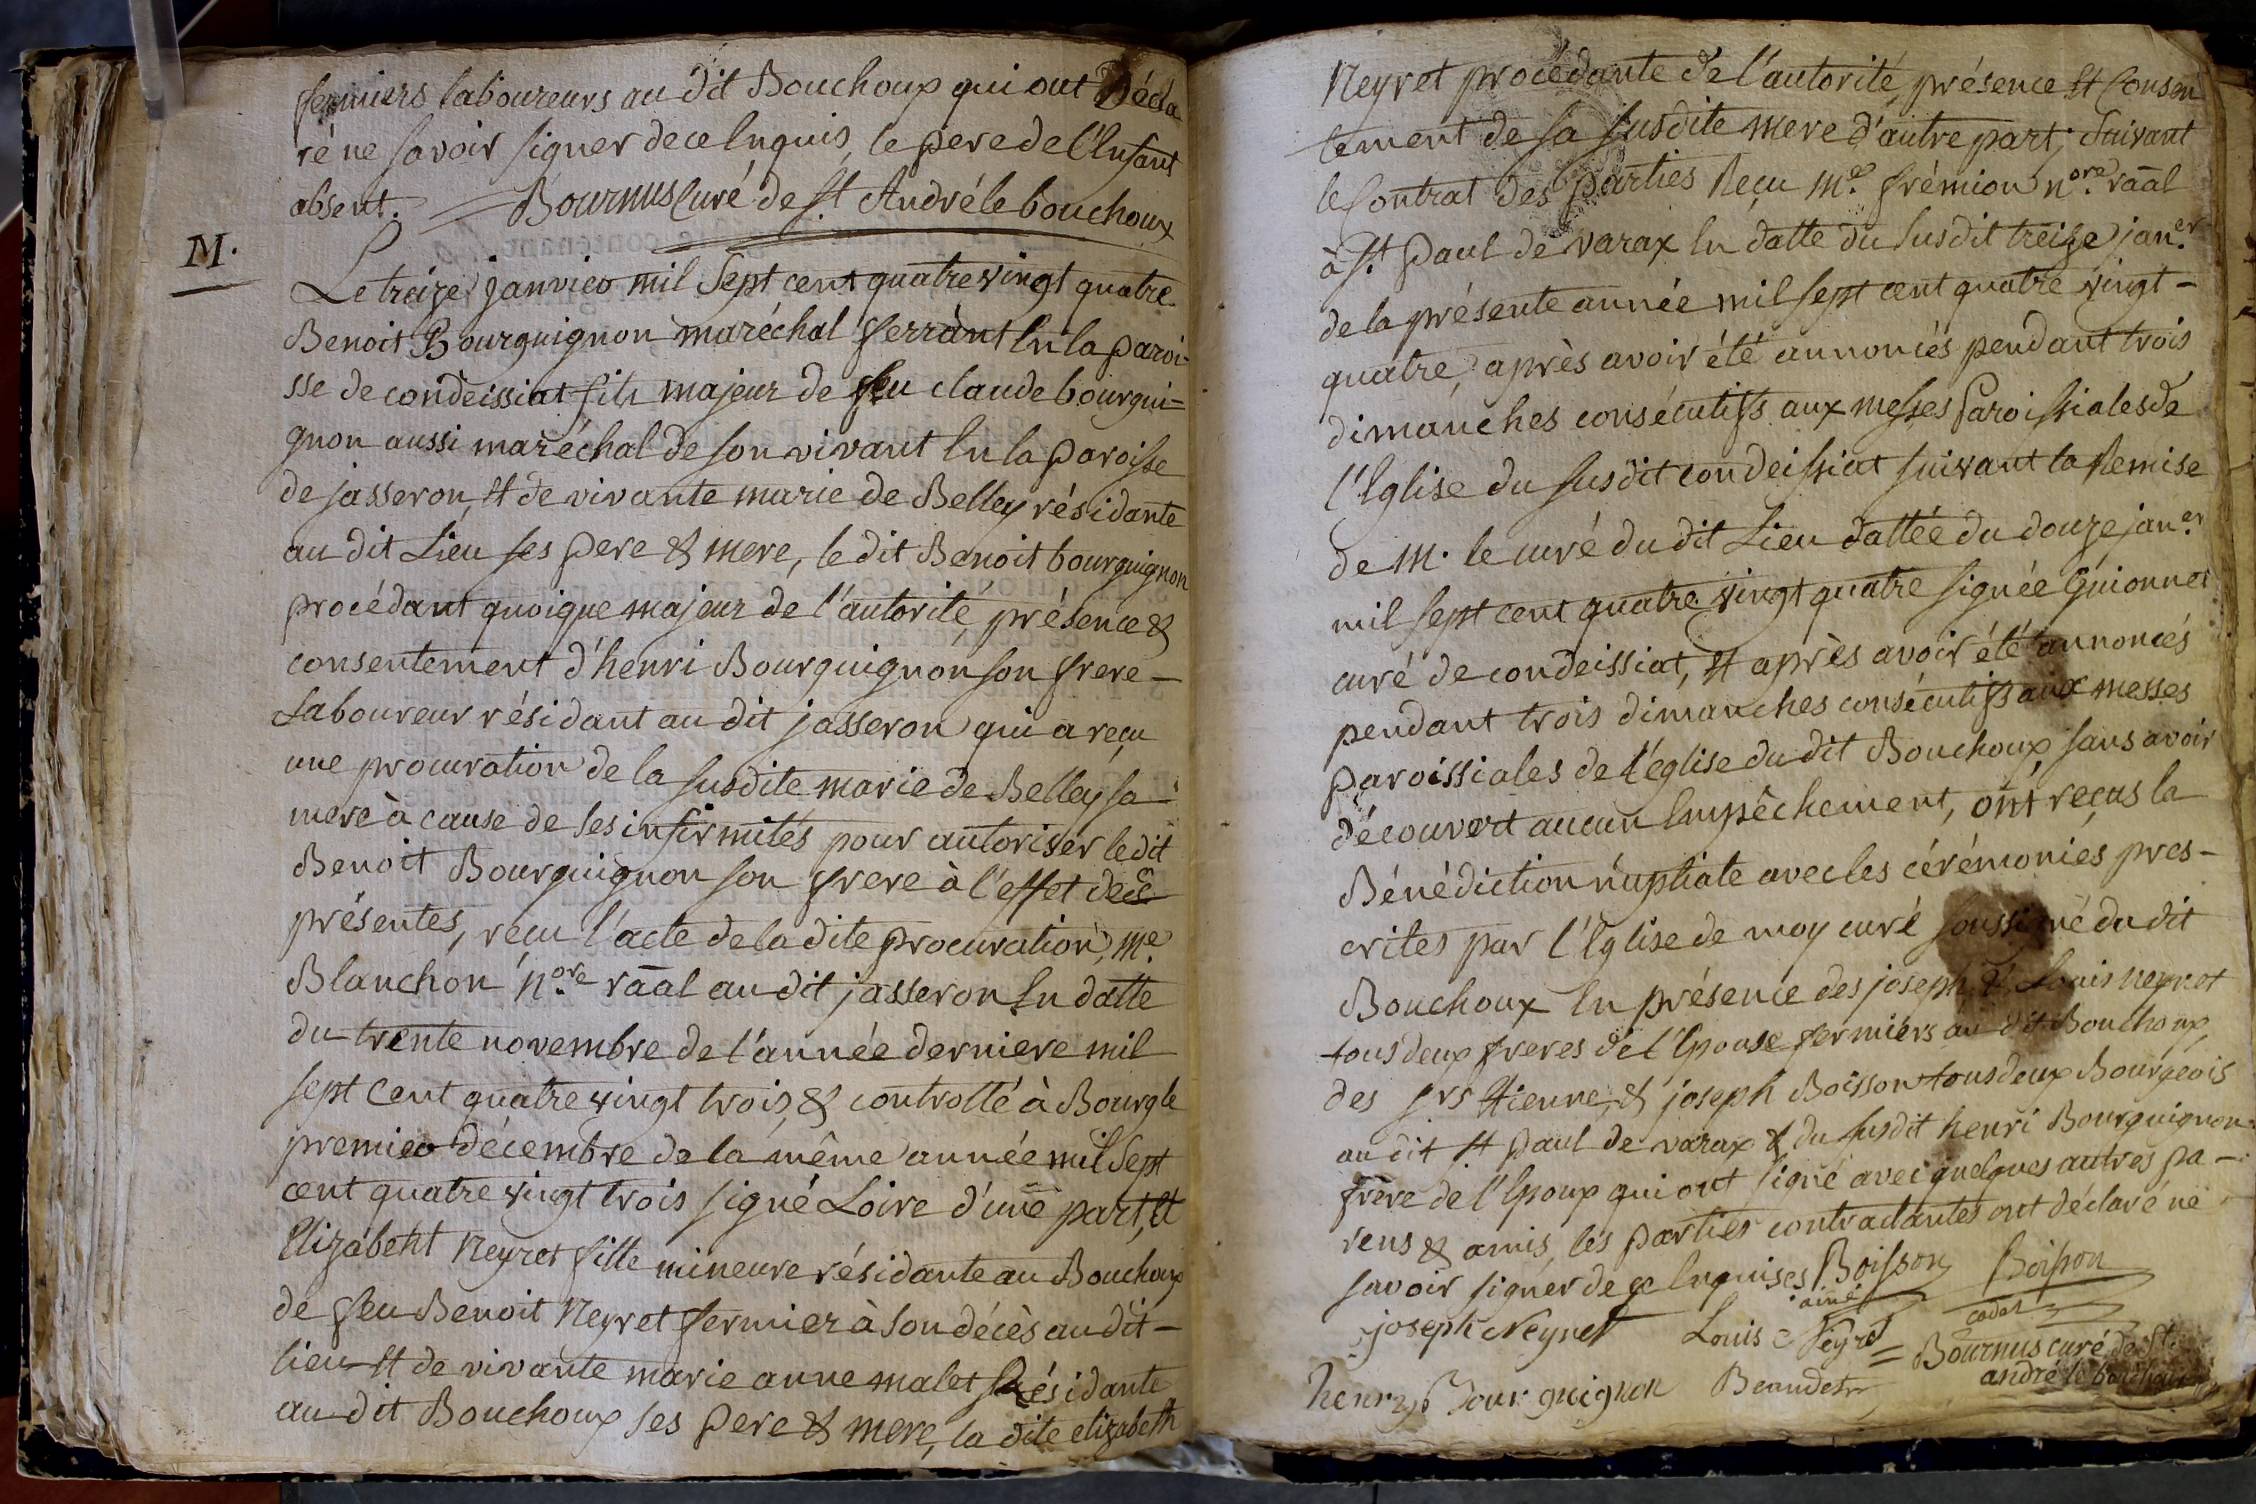 fermiers laboureurs au dit Bouchoux qui ont Décla
ré ne savoir signer de ce Enquis, le pere de l'Enfant
absent. Bournus Curé de St André le bouchoux
M.
Le treize janvier mil Sept cent quatre vingt quatre
Benoit Bourguignon maréchal ferrant En la paroi-
sse de condeissiat fils majeur de feu claude bourgui=
gnon aussi maréchal de son vivant En la paroisse
de jasseron, Et de vivante marie de Belley résidante
au dit Lieu ses pere & mere, le dit Benoit bourguignon
procédant quoique majeur de l'autorité, présence &
consentement d'henri Bourguignon son frere -
Laboureur résidant au dit jasseron qui a reçu
une procuration de la susdite marie de Belley sa -
mere à cause de ses infirmités pour autoriser le dit
Benoit Bourguignon son frere à l'effet des
présentes, reçu l'acte de la dite procuration, me.
Blanchon nore. raal au dit jasseron En datte
du trente novembre de l'année derniere mil
sept cent quatre vingt trois, & controllé à Bourg le
premier décembre de la même année mil Sept
cent quatre vingt trois signé Loire d'une part, Et
Elizabeht Neyret fille mineure résidante au Bouchoux
de feu Benoit Neyret fermier à son décès au dit -
lieu Et de vivante marie anne malet Résidante
au dit Bouchoux ses pere & mere, la dite elizabeth
Neyret procédante de l'autorité, présence Et Consen
tement de sa susdite mere d'autre part; Suivant
le Contrat des parties Reçu me. frémion nore. raal
à St paul de varax En datte du susdit treize janer.
de la présente année mil sept cent quatre vingt -
quatre, après avoir été annoncés pendant trois
dimanches consécutifs aux messes Paroissiales de
l'Eglise du susdit condeissiat suivant la Remise
de M. le curé du dit Lieu dattée du douze janer.
mil sept cent quatre vingt quatre signée Guionnet
curé de condeissiat, Et après avoir été annoncés
pendant trois dimanches consécutifs aux messes
paroissiales de l'église du dit Bouchoux, sans avoir
découvert aucun Empêchement, ont reçus la
Bénédiction nuptiale avec les cérémonies pres-
crites par l'Eglise de moy curé soussigné du dit
Bouchoux En présence des joseph & Louis neyret
tous deux freres de l'Epouse fermiers au dit Bouchoux,
des srs Etienne, & joseph Boisson tous deux Bourgeois
au dit St paul de varax & du susdit henri Bourguignon
frère de l'Epoux qui ont signé avec quelques autres pa-
rens & amis, les parties contractantes ont déclaré ne
savoir signer de ce Enquises Boisson Boisson
ainé cadet
joseph Neyret Louis Neyret = Bournus curé de St
andré le bouchoux
henry Bourguignon Beaudet